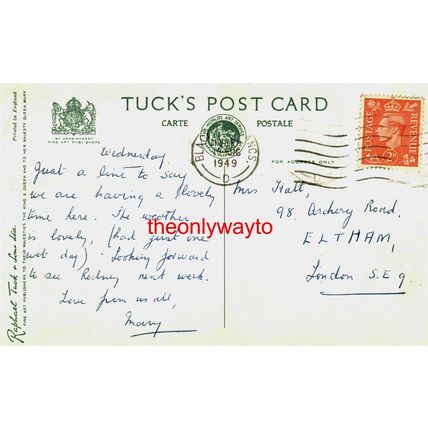 TUCK'S POST CARD
CARTE POSTALE
FOR ADDRESS ONLY
BY APPOINTMENT
FINE ART PUBLISHERS
Printed in England
Raphael Tuck & Sons Ltd.
FINE ART PUBLISHERS TO THEIR MAJESTIES THE KING & QUEEN AND TO HER MAJESTY QUEEN MARY
1949
D
POSTAGE
REVENUE
Wednesday
Just a line to say
we are having a lovely
time here. The weather
is lovely, (had just one
wet day). Looking forward
to see Rodney next week.
Love from us all,
Mary
Mrs Hall,
98, Archery Road,
ELTHAM,
London. S.E 9
theonlywayto